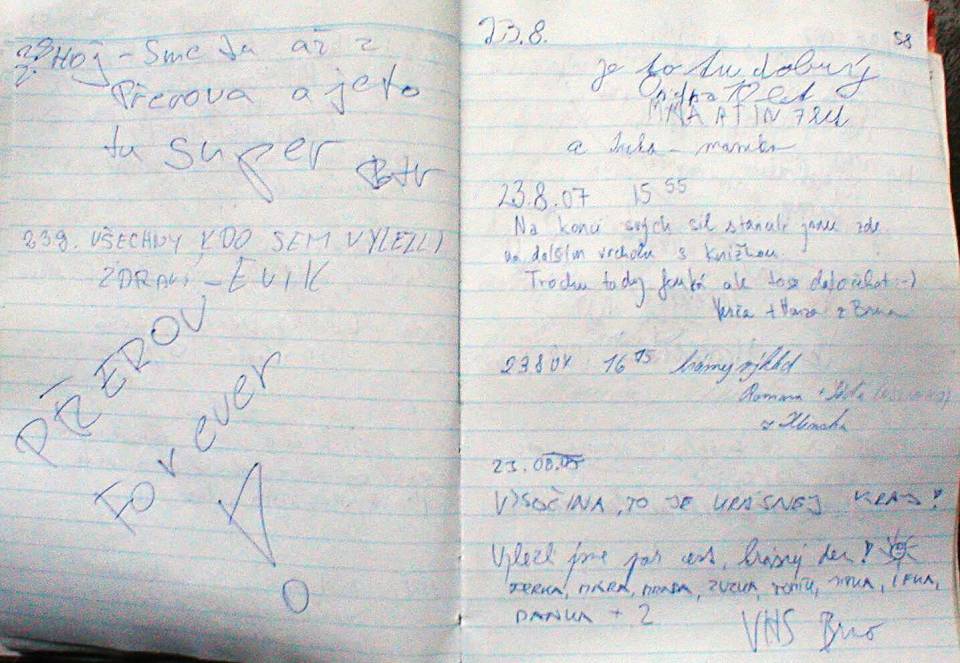 Hoj - Sme tu až z
Přerova a je to
tu super
23.8. VŠECHNY, KDO SEM VYLEZLI
ZDRAVÍ - EVIK
PŘEROV
Forever
!
23.8.
58
je to tu dobrý
a - mamka
23.8.07 15 55
Na konci svých sil stanuli jsme zde
na dalším vrcholu s knížkou.
Trochu tady fouká ale to se dalo čekat :-)
Verča + Honza z Brna
23 8 07 16 15 krásný výhled
Romana +
z Hlinska
23.08.07
VYSOČINA, TO JE KRÁSNEJ KRAJ!
Vylezli jsme pár cest, krásný den!
MÁRA, ZUZKA,
DANKA + 2
VHS Brno